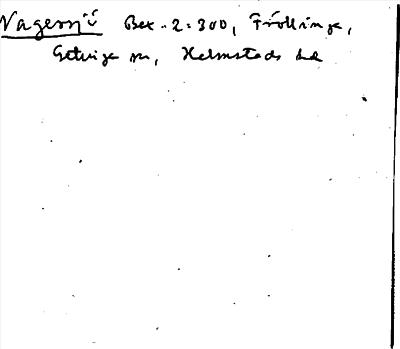 Nagersjö Bex. 2:300, Fröllinge,
Getinge sn, Halmstads hd